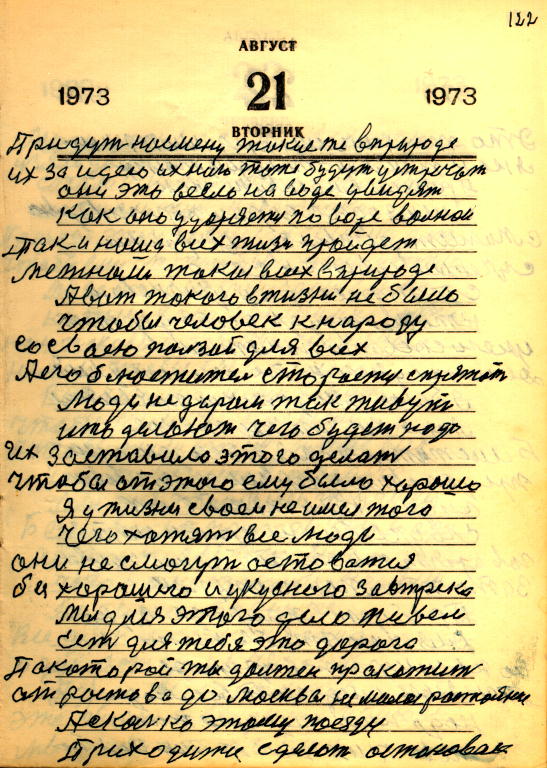 122
АВГУСТ
1973 21 1973
ВТОРНИК
Придут насмену такие те вприроде
их за идею их нам тоже будут
они это весло на воде увидят
как оно ударяет по воде волной
Так и наша всех жизн пройдет
такая всех вприроде
Авот такого вжизни не было
чтобы человек кнароду
со сваею ползай для всех
Аего спрятат
люди недаром так живут
што делают чего будет надо
их заставило этого делат
чтобы от этого ему было хорошо
Я у жизни своеи неимел того
чего хотят все люди
они несмогут остоватся
бз хорошего и укусного завтрека
мы для этого дело живем
сет для тебя это дорога
Пакоторой ты должен пракотит
от ростова до Москвы не мала
Асколко этому поезду
Приходитя сделат остоновак